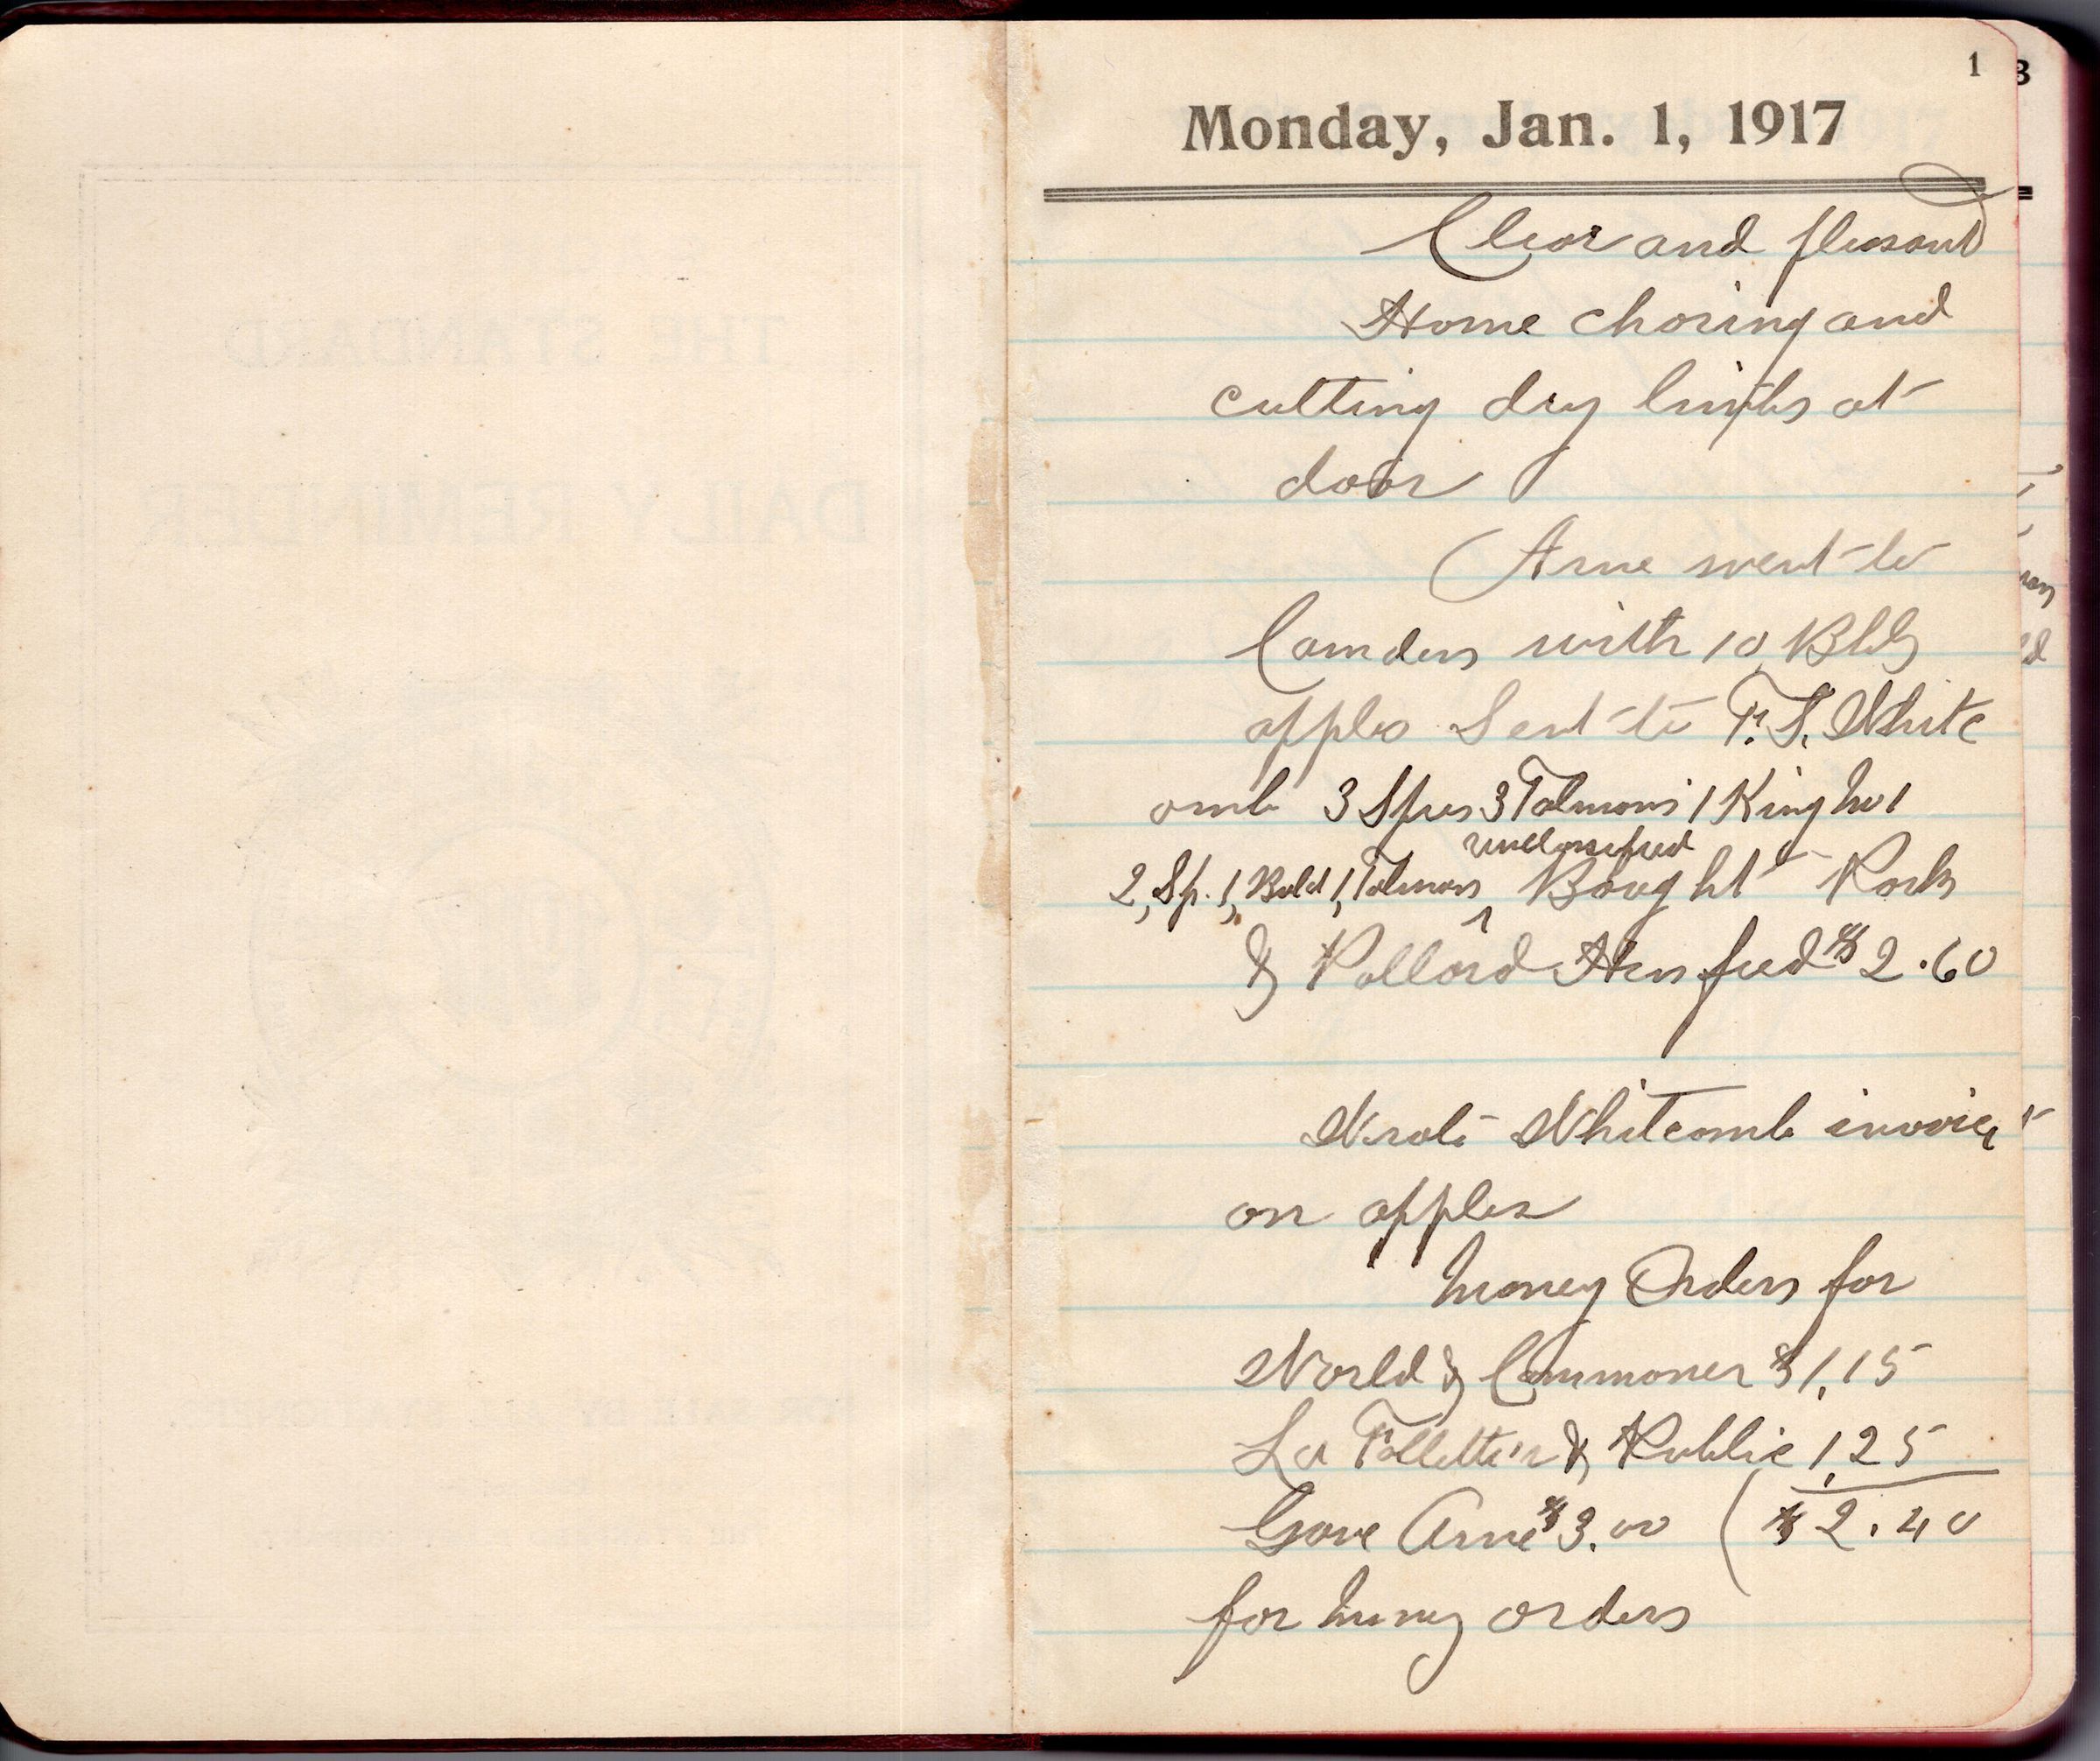 1
Monday, Jan. 1, 1917
Clear and pleasant
Home choring and
cutting dry limbs at
door
Arne went to
Camden with 10 Bbls
apples Sent to F. S. White
comb 3 Spies 3 Talmans 1 King No 1
unclassified
2, Sp. 1, Bald 1, Talman Bought Park
& Pollard Hen feed $2.60
Wrote Whitcomb invoice
on apples
Money Orders for
World & Commoner $1.15
La Follette's & Public 1.25
Gave Arne $3.00 ( $2.40
for money orders
THE STANDARD
DAILY REMINDER